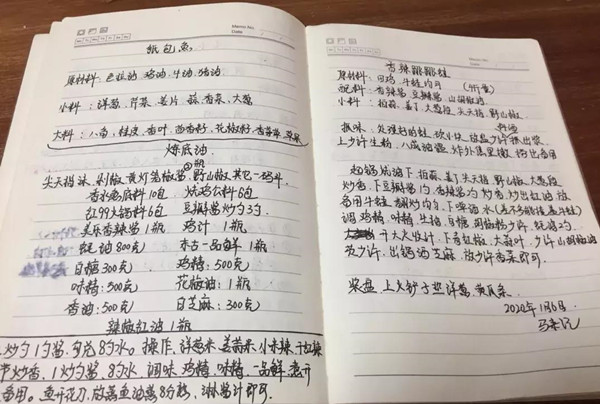 Memo No.
Date
纸包鱼
原材料：色拉油 鸡油 牛油 猪油
小料：洋葱、芹菜 姜片 蒜、香菜、大葱
大料：八角、桂皮、香叶、茴香籽、花椒籽、香茅草、草果
炼底油
尖天椒沫、剁椒、黄灯笼椒酱、野山椒、其它一码斗
香水鱼底料10包 烧鸡公料6包
红99火锅料6包 豆瓣酱炒勺3勺
美乐香辣酱1瓶 鸡汁：1瓶
蚝油800克 本古一品鲜1瓶
白糖300克 鸡精：500克
味精：500克 花椒油：1瓶
香油：500克 白芝麻：300克
辣椒红油1瓶
炒勺1勺酱，勾兑8勺水。操作、洋葱米、姜蒜米、小米辣、干红辣
炒香、1炒勺酱、8勺水 调味 鸡精、味精、一品鲜、煮开
备用。鱼开花刀、放蒸鱼油蒸8分熟、淋酱汁即可。
Memo No.
Date
香辣跳跳蛙
原材料：田鸡 牛蛙均可
配料：香辣酱 豆瓣酱 山胡椒油
小料：拍蒜、姜丁、大葱段、尖天椒、野山椒、
抓味：处理好的蛙、砍小块、放盐少许 抓出浆、
上少许生粉、八成油温、炸外焦里嫩、捞出备用
起锅烧油下 拍蒜、姜丁尖天椒、野山椒、大葱段
炒香、下豆瓣酱1勺、香辣酱1勺 炒香、炒出红油、放
备用牛蛙、翻炒均匀、下啤酒、水
调鸡精、味精、生抽、白糖、胡椒粉少许、
干大火收汁、下青红椒、大蒜叶、少许山胡椒油
少许、出锅洒芝麻、放少许香菜即可、
装盘、上火炉子垫洋葱、黄瓜条
2020年1月6号